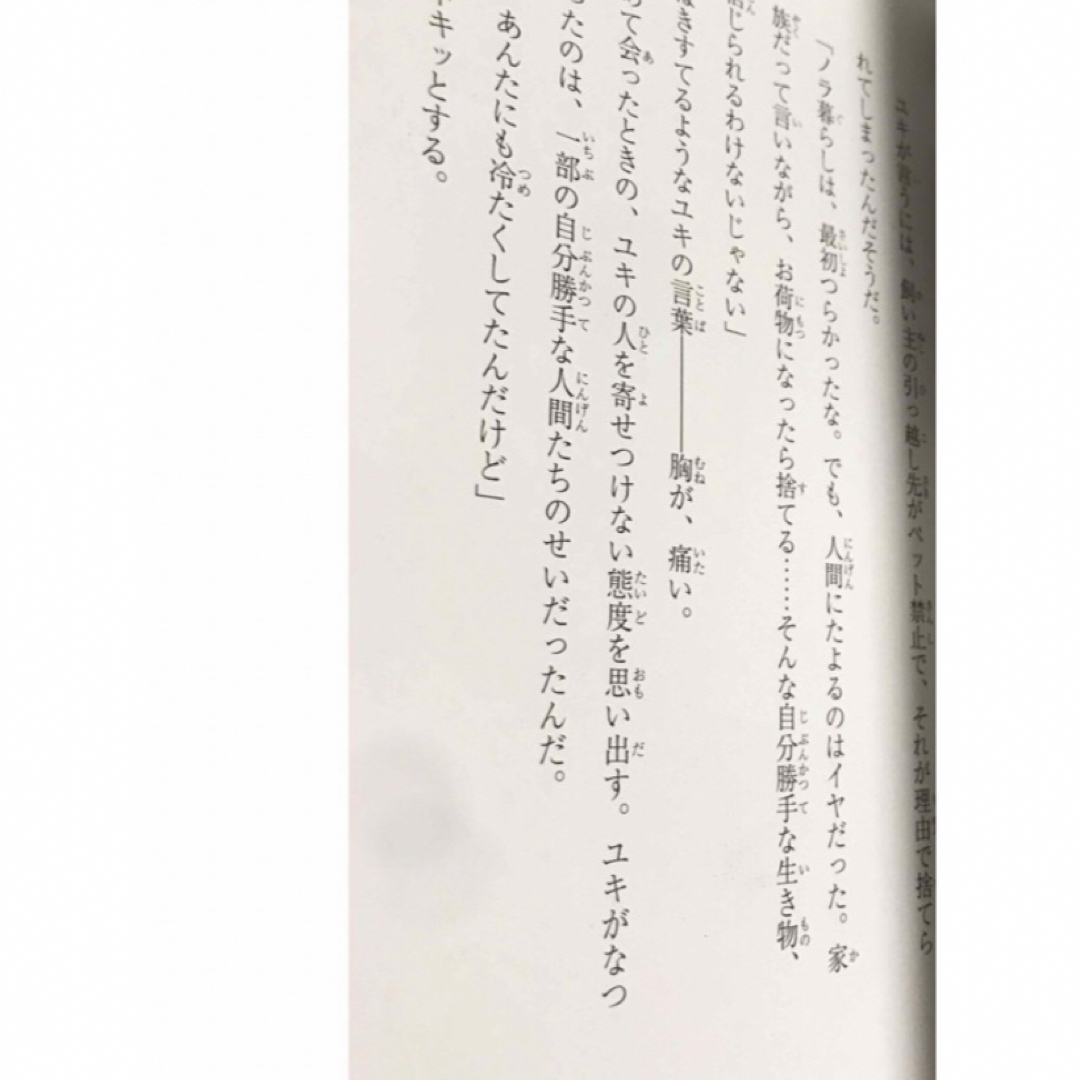 ユキが言うには、飼い主の引っ越し先がペット禁止で、それが理由で捨てら
れてしまったんだそうだ。
「ノラ暮らしは、最初つらかったな。でも、人間にたよるのはイヤだった。家
族だって言いながら、お荷物になったら捨てる……そんな自分勝手な生き物、
信じられるわけないじゃない」
きすてるようなユキの言葉――胸が、痛い。
めて会ったときの、ユキの人を寄せつけない態度を思い出す。ユキがなつ
たのは、一部の自分勝手な人間たちのせいだったんだ。
あんたにも冷たくしてたんだけど」
キッとする。